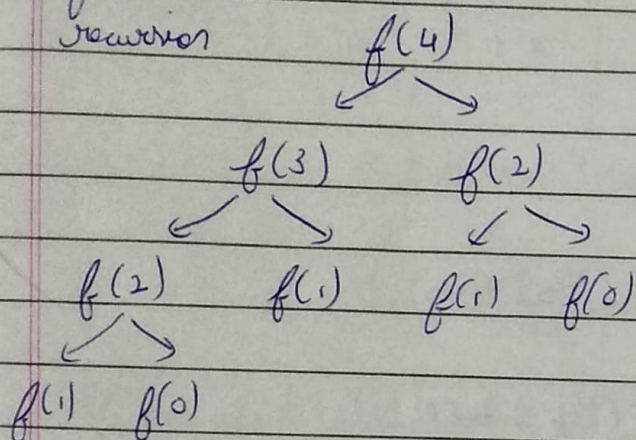 recursion f(4)
f(3) f(2)
f(2) f(1) f(1) f(0)
f(1) f(0)